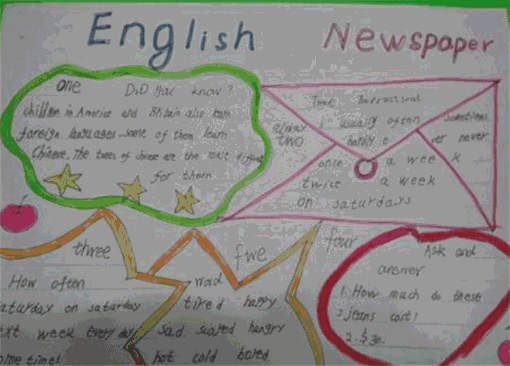 English Newspaper
one Did You know?
children in America and Britain also learn
foreign languages some of them learn
Chinese. The tones of chinese are the most difficult
for them
Time
always usually often sometimes
TWO hardly ever never
once a week
twice a week
on saturdays
three
How often
saturday on saturday
next week every day
sometimes
five
word
tired happy
sad scared hungry
hot cold bored
four
Ask and
answer
1. How much do these
jeans cost?
2. $30.